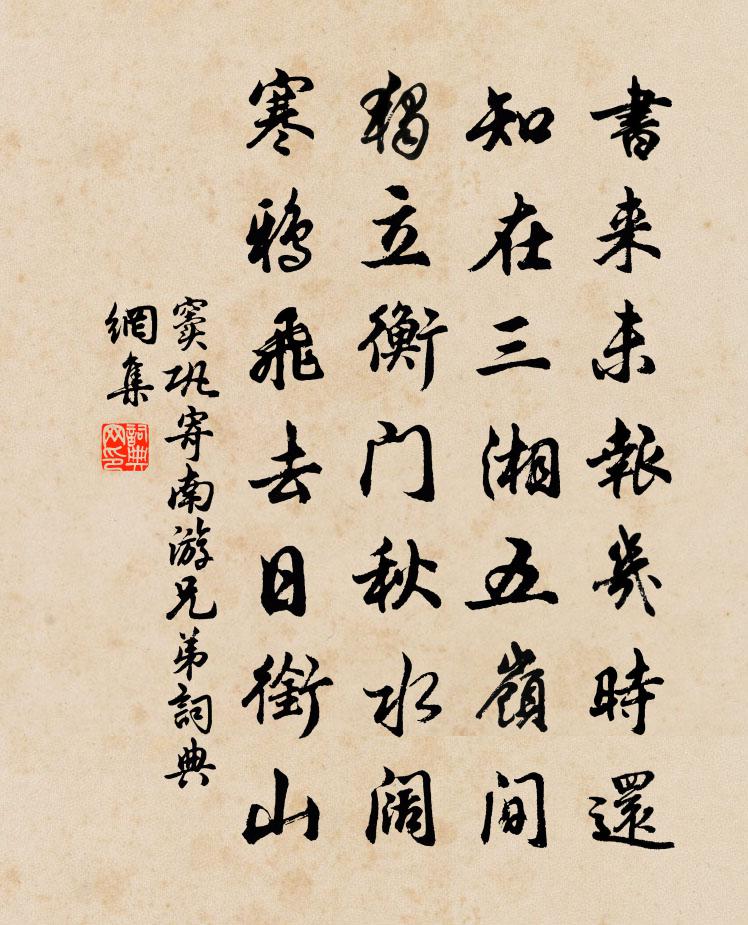 書来未報幾時還
知在三湘五嶺間
獨立衡門秋水闊
寒鴉飛去日銜山
竇巩寄南游兄弟詞典
網集
詞典
网印